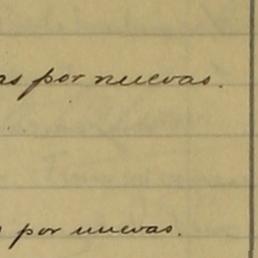 as por nuevas.
s por nuevas.